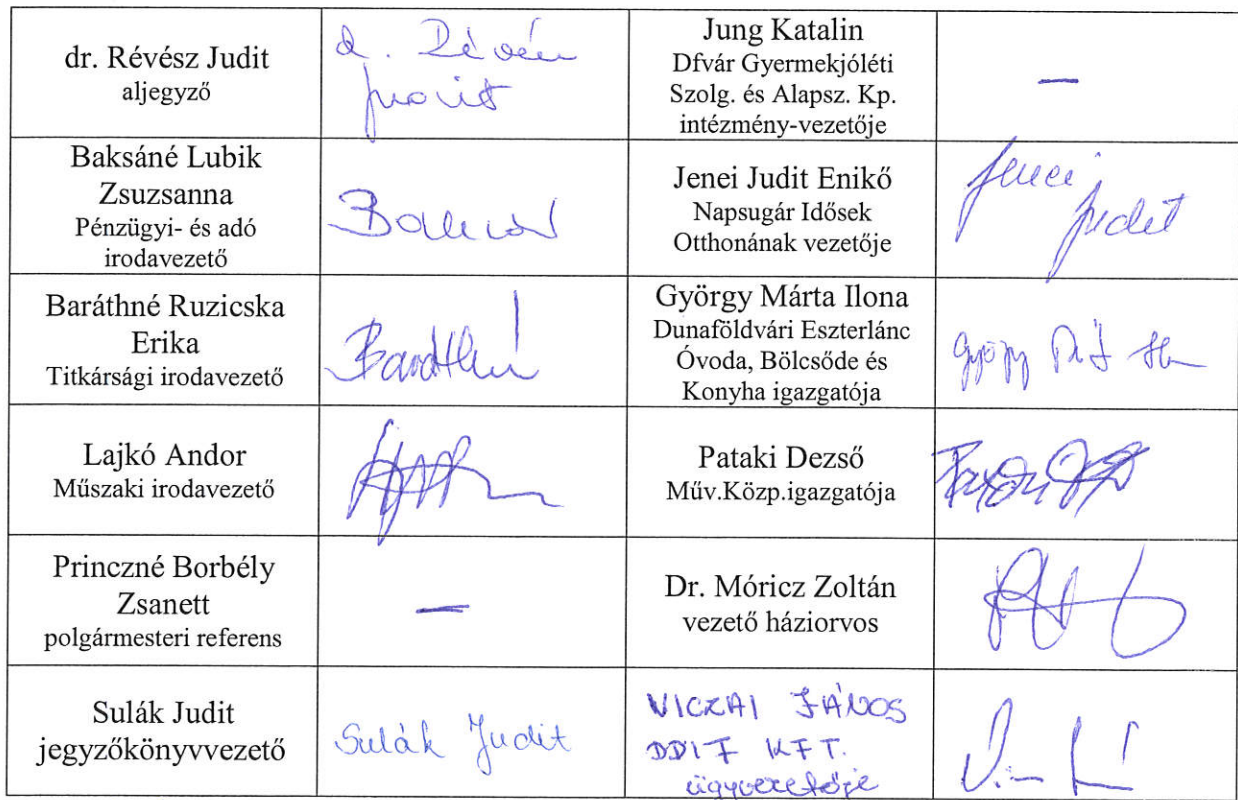 dr. Révész Judit
aljegyző
d. Révész
Judit
Jung Katalin
Dfvár Gyermekjóléti
Szolg. és Alapsz. Kp.
intézmény-vezetője
—
Baksáné Lubik
Zsuzsanna
Pénzügyi- és adó
irodavezető
Jenei Judit Enikő
Napsugár Idősek
Otthonának vezetője
Jenei
Judit
Baráthné Ruzicska
Erika
Titkársági irodavezető
Baráthné
György Márta Ilona
Dunaföldvári Eszterlánc
Óvoda, Bölcsőde és
Konyha igazgatója
György
Lajkó Andor
Műszaki irodavezető
Pataki Dezső
Műv.Közp.igazgatója
Princzné Borbély
Zsanett
polgármesteri referens
—
Dr. Móricz Zoltán
vezető háziorvos
Sulák Judit
jegyzőkönyvvezető
Sulák Judit
VICZAI JÁNOS
DDIF KFT.
ügyvezetője